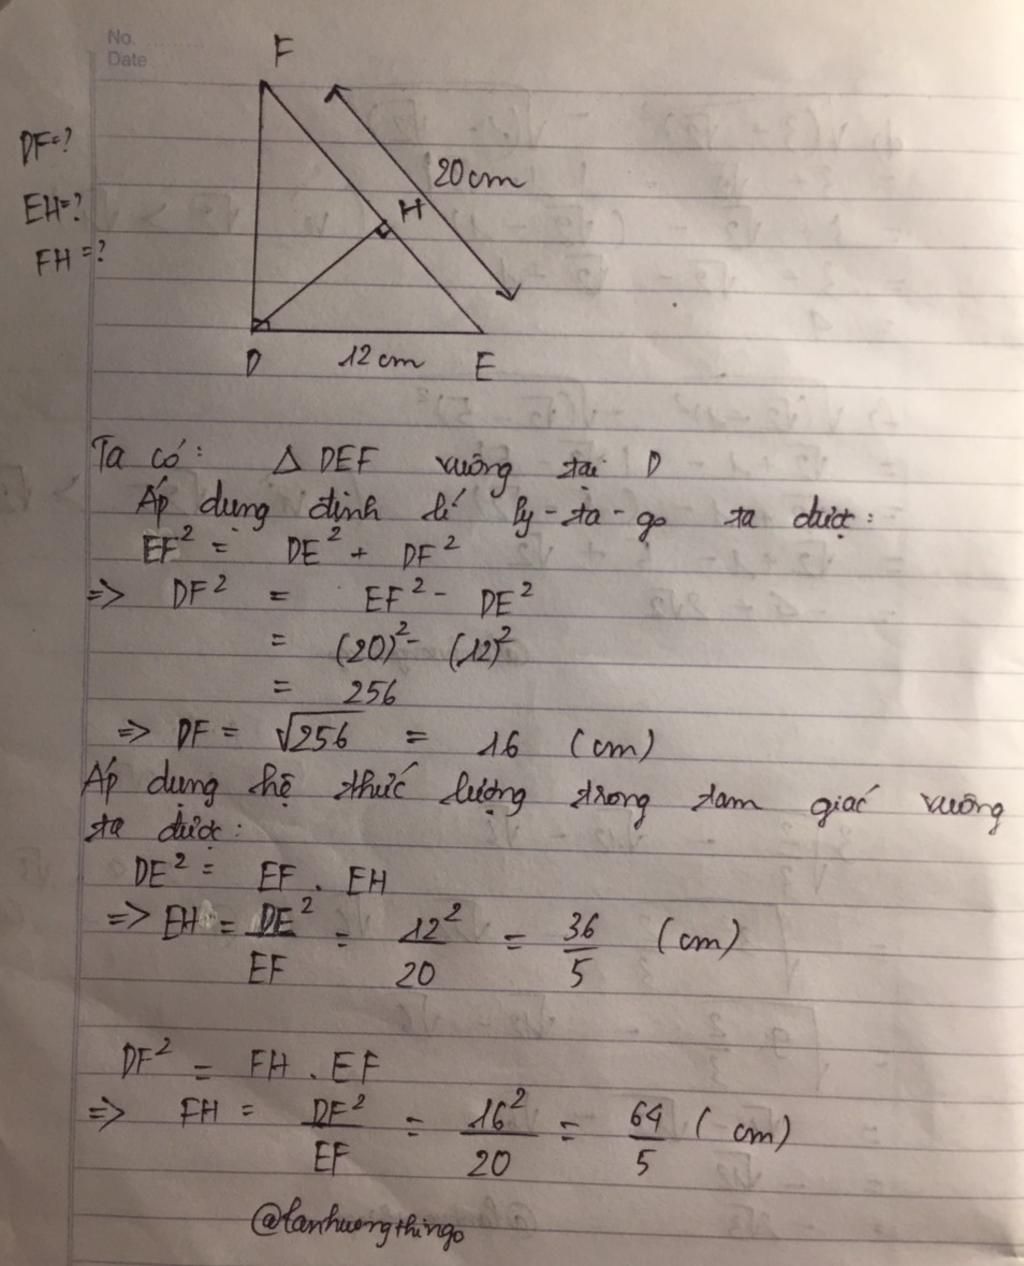 No.
Date
F
DF=?
EH=?
FH=?
20cm
H
D
12cm
E
Ta có: Δ DEF vuông tại D
Áp dụng định lí Py-ta-go ta được:
EF² = DE² + DF²
=> DF² = EF² - DE²
= (20)² - (12)²
= 256
=> DF = √256 = 16 (cm)
Áp dụng hệ thức lượng trong tam giác vuông
ta được:
DE² = EF . EH
=> EH = DE²/EF = 12²/20 = 36/5 (cm)
DF² = FH . EF
=> FH = DF²/EF = 16²/20 = 64/5 (cm)
@lanhuongthingo